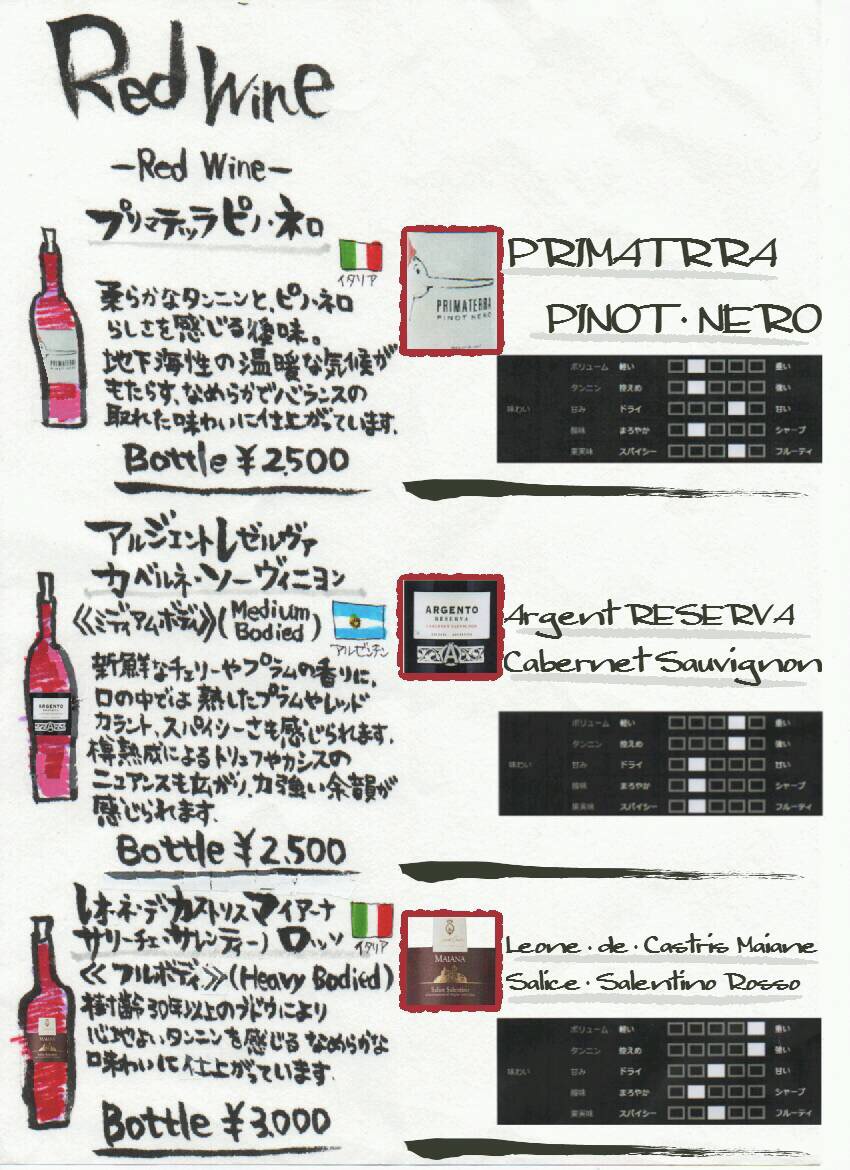 Red Wine
-Red Wine-
プリマテッラ ピノ・ネロ
イタリア
柔らかなタンニンと、ピノ・ネロ
らしさを感じる後味。
地下海性の温暖な気候が
もたらす、なめらかでバランスの
取れた味わいに仕上がっています。
Bottle ¥2,500
PRIMATERRA
PINOT NERO
PRIMATRRA
PINOT・NERO
ボリューム 軽い 重い
タンニン 控えめ 強い
味わい 甘み ドライ 甘い
酸味 まろやか シャープ
果実味 スパイシー フルーティ
アルジェント レゼルヴァ
カベルネ・ソーヴィニヨン
《ミディアムボディ》(Medium Bodied)
アルゼンチン
新鮮なチェリーやプラムの香りに、
口の中では熟したプラムやレッド
カラント、スパイシーさも感じられます。
樽熟成によるトリュフやカシスの
ニュアンスも広がり、力強い余韻が
感じられます。
Bottle ¥2,500
ARGENTO
RESERVA
CABERNET SAUVIGNON
Argent RESERVA
Cabernet Sauvignon
ボリューム 軽い 重い
タンニン 控えめ 強い
味わい 甘み ドライ 甘い
酸味 まろやか シャープ
果実味 スパイシー フルーティ
レオーネ・デ・カストリス マイアーナ
サリーチェ・サレンティーノ ロッソ
イタリア
《フルボディ》(Heavy Bodied)
樹齢30年以上のブドウにより
心地よいタンニンを感じるなめらかな
味わいに仕上がっています。
Bottle ¥3,000
MAIANA
Salice Salentino
Leone・de・Castris Maiane
Salice・Salentino Rosso
ボリューム 軽い 重い
タンニン 控えめ 強い
味わい 甘み ドライ 甘い
酸味 まろやか シャープ
果実味 スパイシー フルーティ